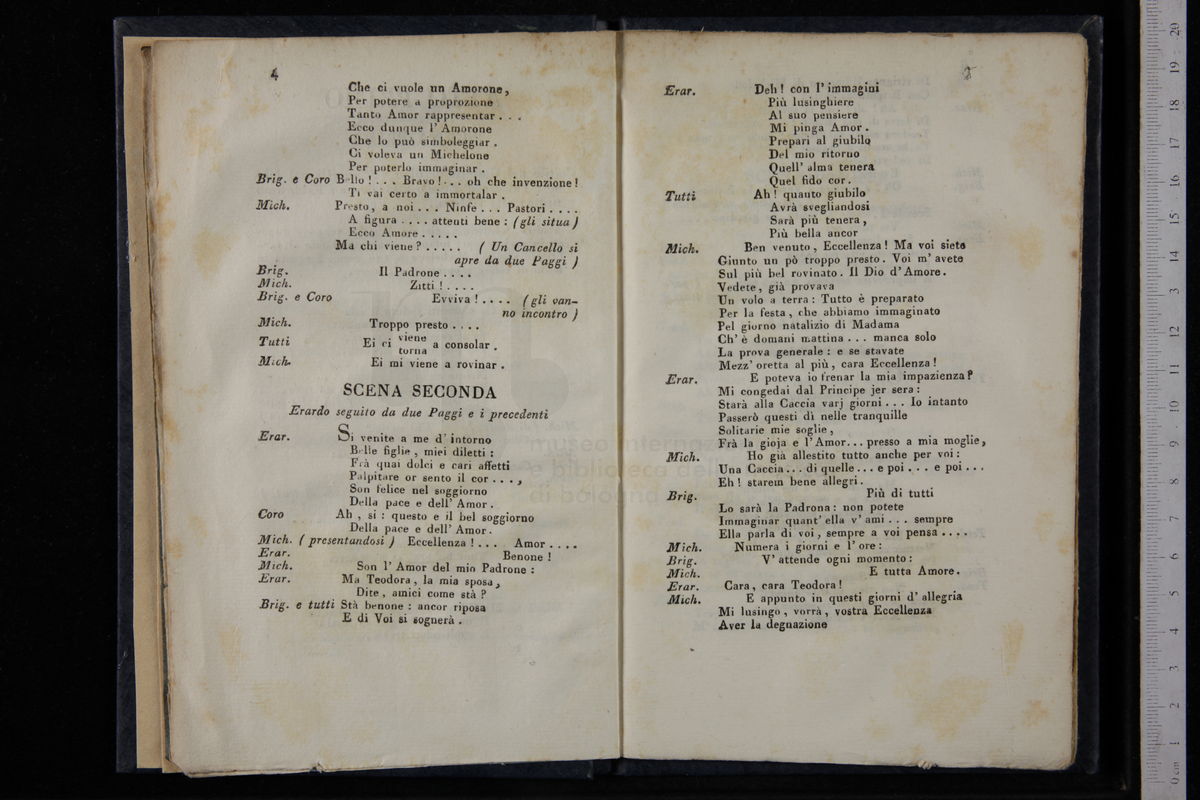 4
Che ci vuole un Amorone,
Per potere a proprozione
Tanto Amor rappresentar . . .
Ecco dunque l' Amorone
Che lo può simboleggiar .
Ci voleva un Michelone
Per poterlo immaginar .
Brig. e Coro Bello ! . . . Bravo ! . . . oh che invenzione !
Ti vai certo a immortalar .
Mich. Presto, a noi . . . Ninfe . . . Pastori . . . .
A figura . . . . attenti bene : (gli situa)
Ecco Amore . . . . .
Ma chi viene ? . . . . . ( Un Cancello si
apre da due Paggi )
Brig. Il Padrone . . . .
Mich. Zitti ! . . . .
Brig. e Coro Evviva ! . . . . (gli van-
no incontro )
Mich. Troppo presto . . . .
Tutti Ei ci viene torna a consolar .
Mich. Ei mi viene a rovinar .
SCENA SECONDA
Erardo seguito da due Paggi e i precedenti
Erar. Si venite a me d' intorno
Belle figlie , miei diletti :
Frà quai dolci e cari affetti
Palpitare or sento il cor . . . ,
Son felice nel soggiorno
Della pace e dell' Amor .
Coro Ah , sì : questo e il bel soggiorno
Della pace e dell' Amor .
Mich. ( presentandosi ) Eccellenza ! . . . Amor . . . .
Erar. Benone !
Mich. Son l' Amor del mio Padrone :
Erar. Ma Teodora , la mia sposa ,
Dite , amici come stà ?
Brig. e tutti Stà benone : ancor riposa
E di Voi si sognerà .
Erar. Deh ! con l' immagini
Più lusinghiere
Al suo pensiere
Mi pinga Amor .
Prepari al giubilo
Del mio ritorno
Quell' alma tenera
Quel fido cor .
Tutti Ah ! quanto giubilo
Avrà svegliandosi
Sarà più tenera ,
Più bella ancor
Mich. Ben venuto , Eccellenza ! Ma voi siete
Giunto un pò troppo presto . Voi m' avete
Sul più bel rovinato . Il Dio d' Amore .
Vedete , già provava
Un volo a terra : Tutto è preparato
Per la festa , che abbiamo immaginato
Pel giorno natalizio di Madama
Ch' è domani mattina . . . manca solo
La prova generale : e se stavate
Mezz' oretta al più , cara Eccellenza !
Erar. E poteva io frenar la mia impazienza ?
Mi congedai dal Principe jer sera :
Starà alla Caccia varj giorni . . . Io intanto
Passerò questi dì nelle tranquille
Solitarie mie soglie ,
Frà la gioja e l' Amor . . . presso a mia moglie ,
Mich. Ho già allestito tutto anche per voi :
Una Caccia . . . di quelle . . . e poi . . . e poi . . .
Eh ! starem bene allegri .
Brig. Più di tutti
Lo sarà la Padrona : non potete
Immaginar quant' ella v' ami . . . sempre
Ella parla di voi , sempre a voi pensa . . . .
Mich. Numera i giorni e l' ore :
Brig. V' attende ogni momento :
Mich. E tutta Amore .
Erar. Cara , cara Teodora !
Mich. E appunto in questi giorni d' allegria
Mi lusingo , vorrà , vostra Eccellenza
Aver la degnazione
museo internaz
e biblioteca del
di bologna
0 cm 1 2 3 4 5 6 7 8 9 10 11 12 13 14 15 16 17 18 19 20